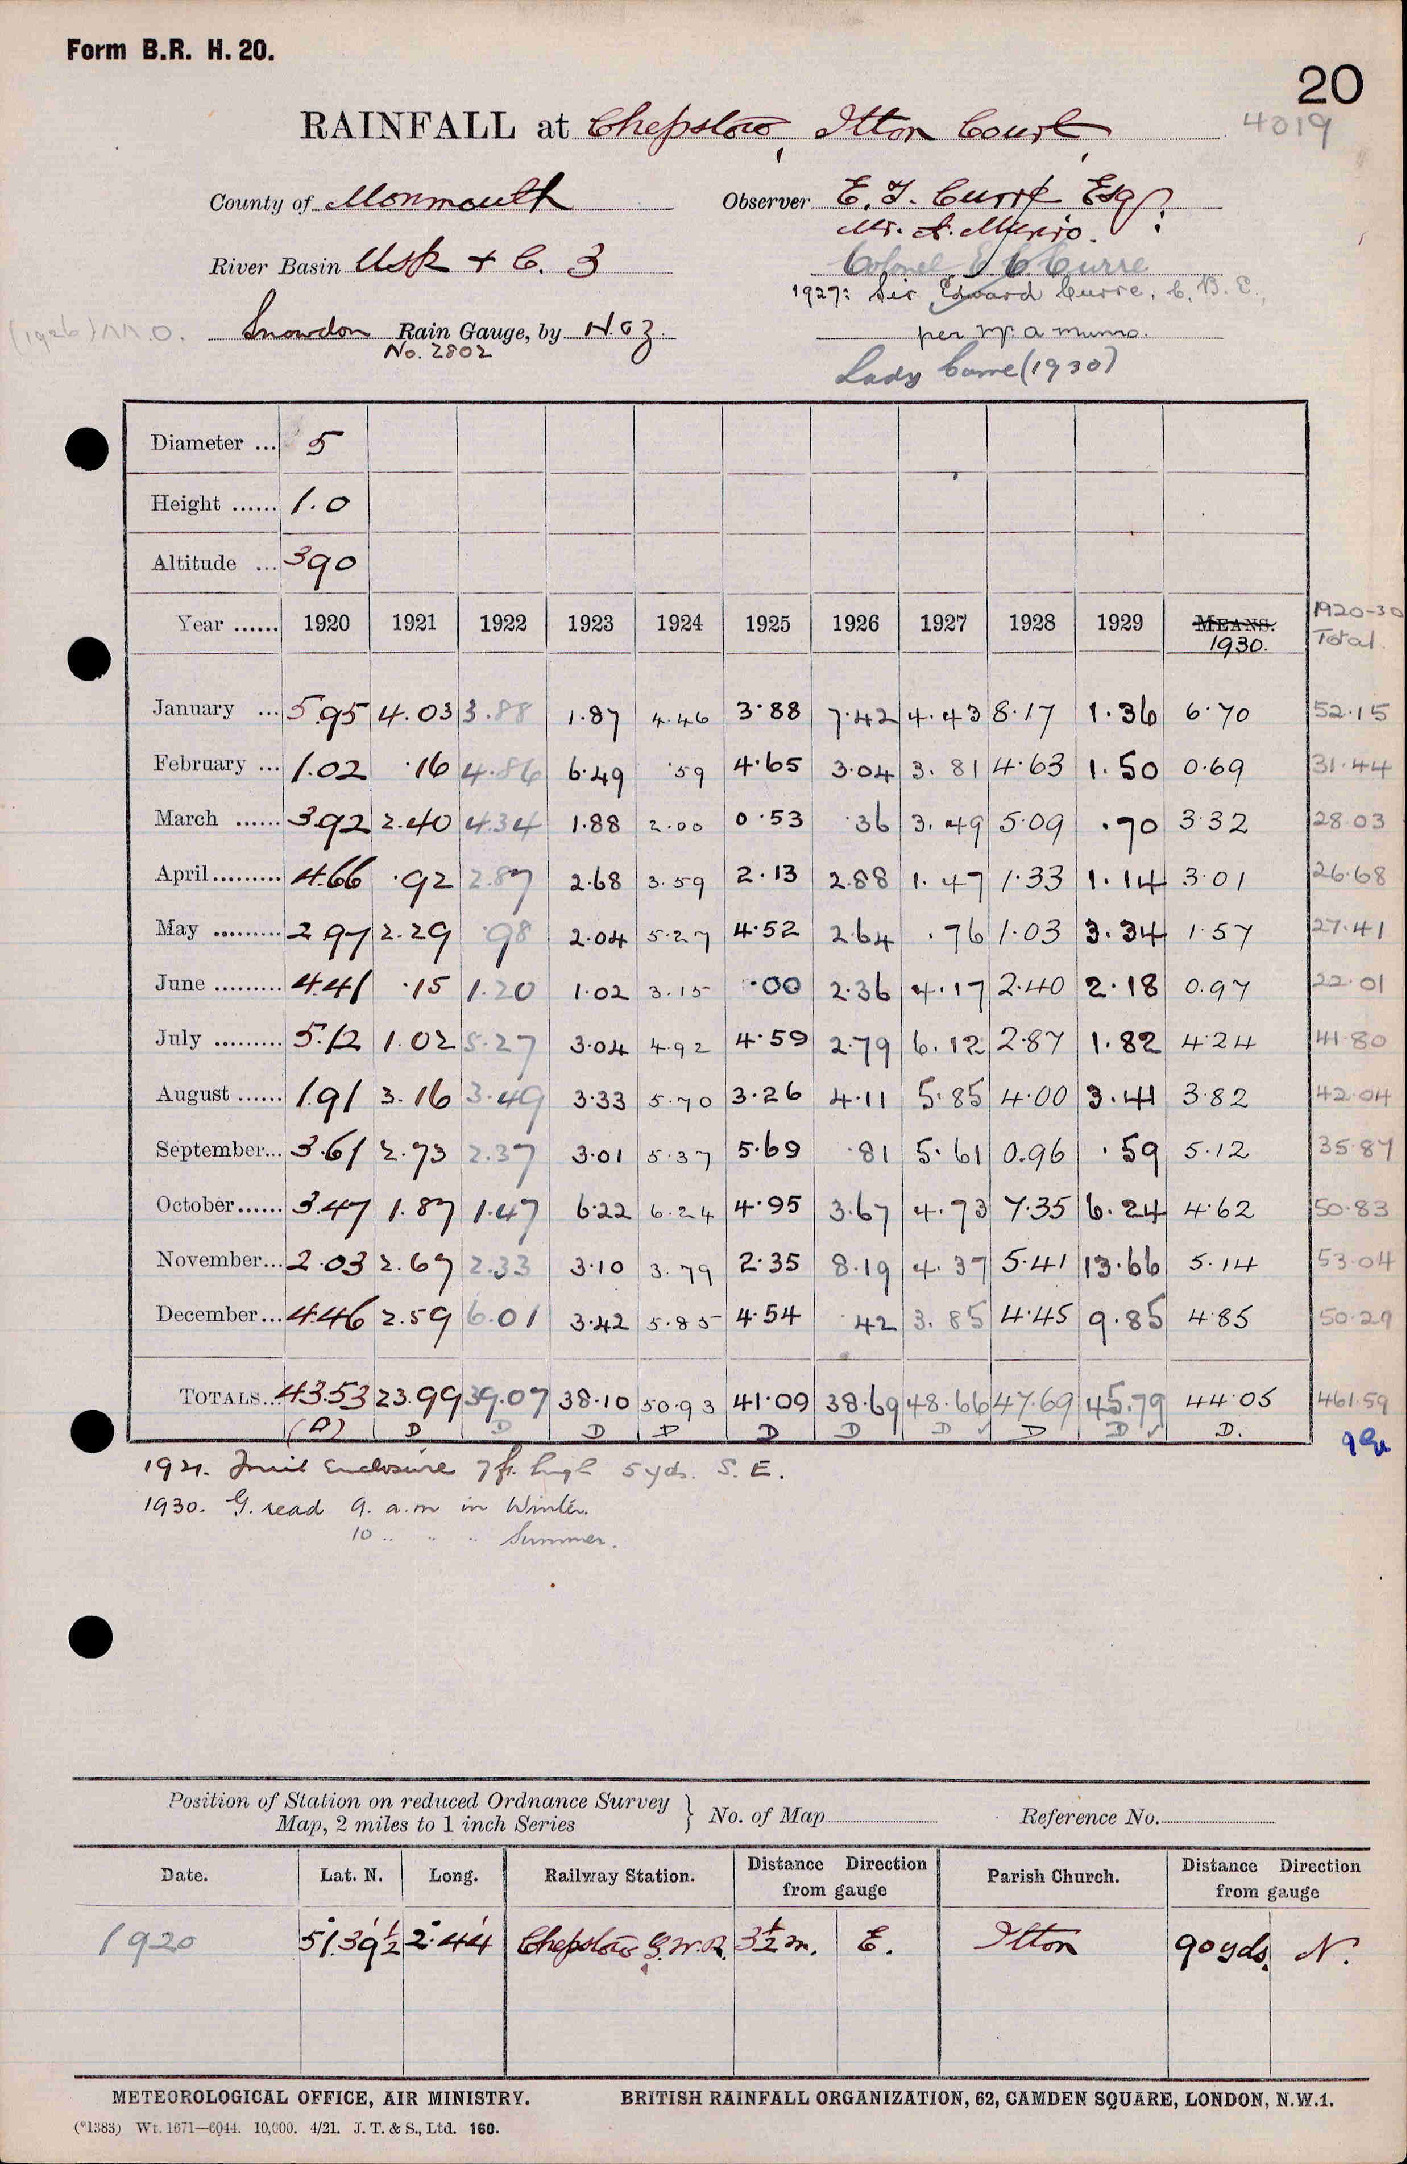 Form B.R. H. 20.
20
RAINFALL at Chepstow, Itton Court,
4019
County of Monmouth
Observer E. T. Curre Esq.
Mr. A. Munro.
River Basin Usk + C. 3
Colonel E C Curre
1927: Sir Edward Curre, C. B. E.,
(1926) M.O. Snowdon Rain Gauge, by N & Z.
per Mr. A Munro.
No. 2802
Lady Curre (1930)
Diameter ... 5
Height ...... 1.0
Altitude ... 390
Year ...... 1920 1921 1922 1923 1924 1925 1926 1927 1928 1929 MEANS. 1930. 1920-30 Total
January ... 5.95 4.03 3.88 1.87 4.46 3.88 7.42 4.43 8.17 1.36 6.70 52.15
February ... 1.02 .16 4.86 6.49 .59 4.65 3.04 3.81 4.63 1.50 0.69 31.44
March ...... 3.92 2.40 4.34 1.88 2.00 0.53 .36 3.49 5.09 .70 3.32 28.03
April......... 4.66 .92 2.87 2.68 3.59 2.13 2.88 1.47 1.33 1.14 3.01 26.68
May ......... 2.97 2.29 .98 2.04 5.27 4.52 2.64 .76 1.03 3.34 1.57 27.41
June ......... 4.41 .15 1.20 1.02 3.15 .00 2.36 4.17 2.40 2.18 0.97 22.01
July ......... 5.12 1.02 5.27 3.04 4.92 4.59 2.79 6.12 2.87 1.82 4.24 41.80
August ...... 1.91 3.16 3.49 3.33 5.70 3.26 4.11 5.85 4.00 3.41 3.82 42.04
September... 3.61 2.73 2.37 3.01 5.37 5.69 .81 5.61 0.96 .59 5.12 35.87
October...... 3.47 1.87 1.47 6.22 6.24 4.95 3.67 4.73 7.35 6.24 4.62 50.83
November... 2.03 2.67 2.33 3.10 3.79 2.35 8.19 4.37 5.41 13.66 5.14 53.04
December... 4.46 2.59 6.01 3.42 5.85 4.54 .42 3.85 4.45 9.85 4.85 50.29
TOTALS... 43.53 23.99 39.07 38.10 50.93 41.09 38.69 48.66 47.69 45.79 44.05 461.59
(D) D D D D D D D D D D.
1921. Fruit Enclosure 7 ft. high 5 yds. S. E.
1930. G. read 9. a.m in Winter.
10 .. .. .. Summer.
Position of Station on reduced Ordnance Survey
Map, 2 miles to 1 inch Series } No. of Map Reference No.
Date. Lat. N. Long. Railway Station. Distance Direction from gauge Parish Church. Distance Direction from gauge
1920 51° 39' ½ 2° 44' Chepstow, G.W.R. 3½ m. E. Itton 90 yds. N.
METEOROLOGICAL OFFICE, AIR MINISTRY. BRITISH RAINFALL ORGANIZATION, 62, CAMDEN SQUARE, LONDON, N.W.1.
(*1383) Wt. 1671—6044. 10,000. 4/21. J. T. & S., Ltd. 160.